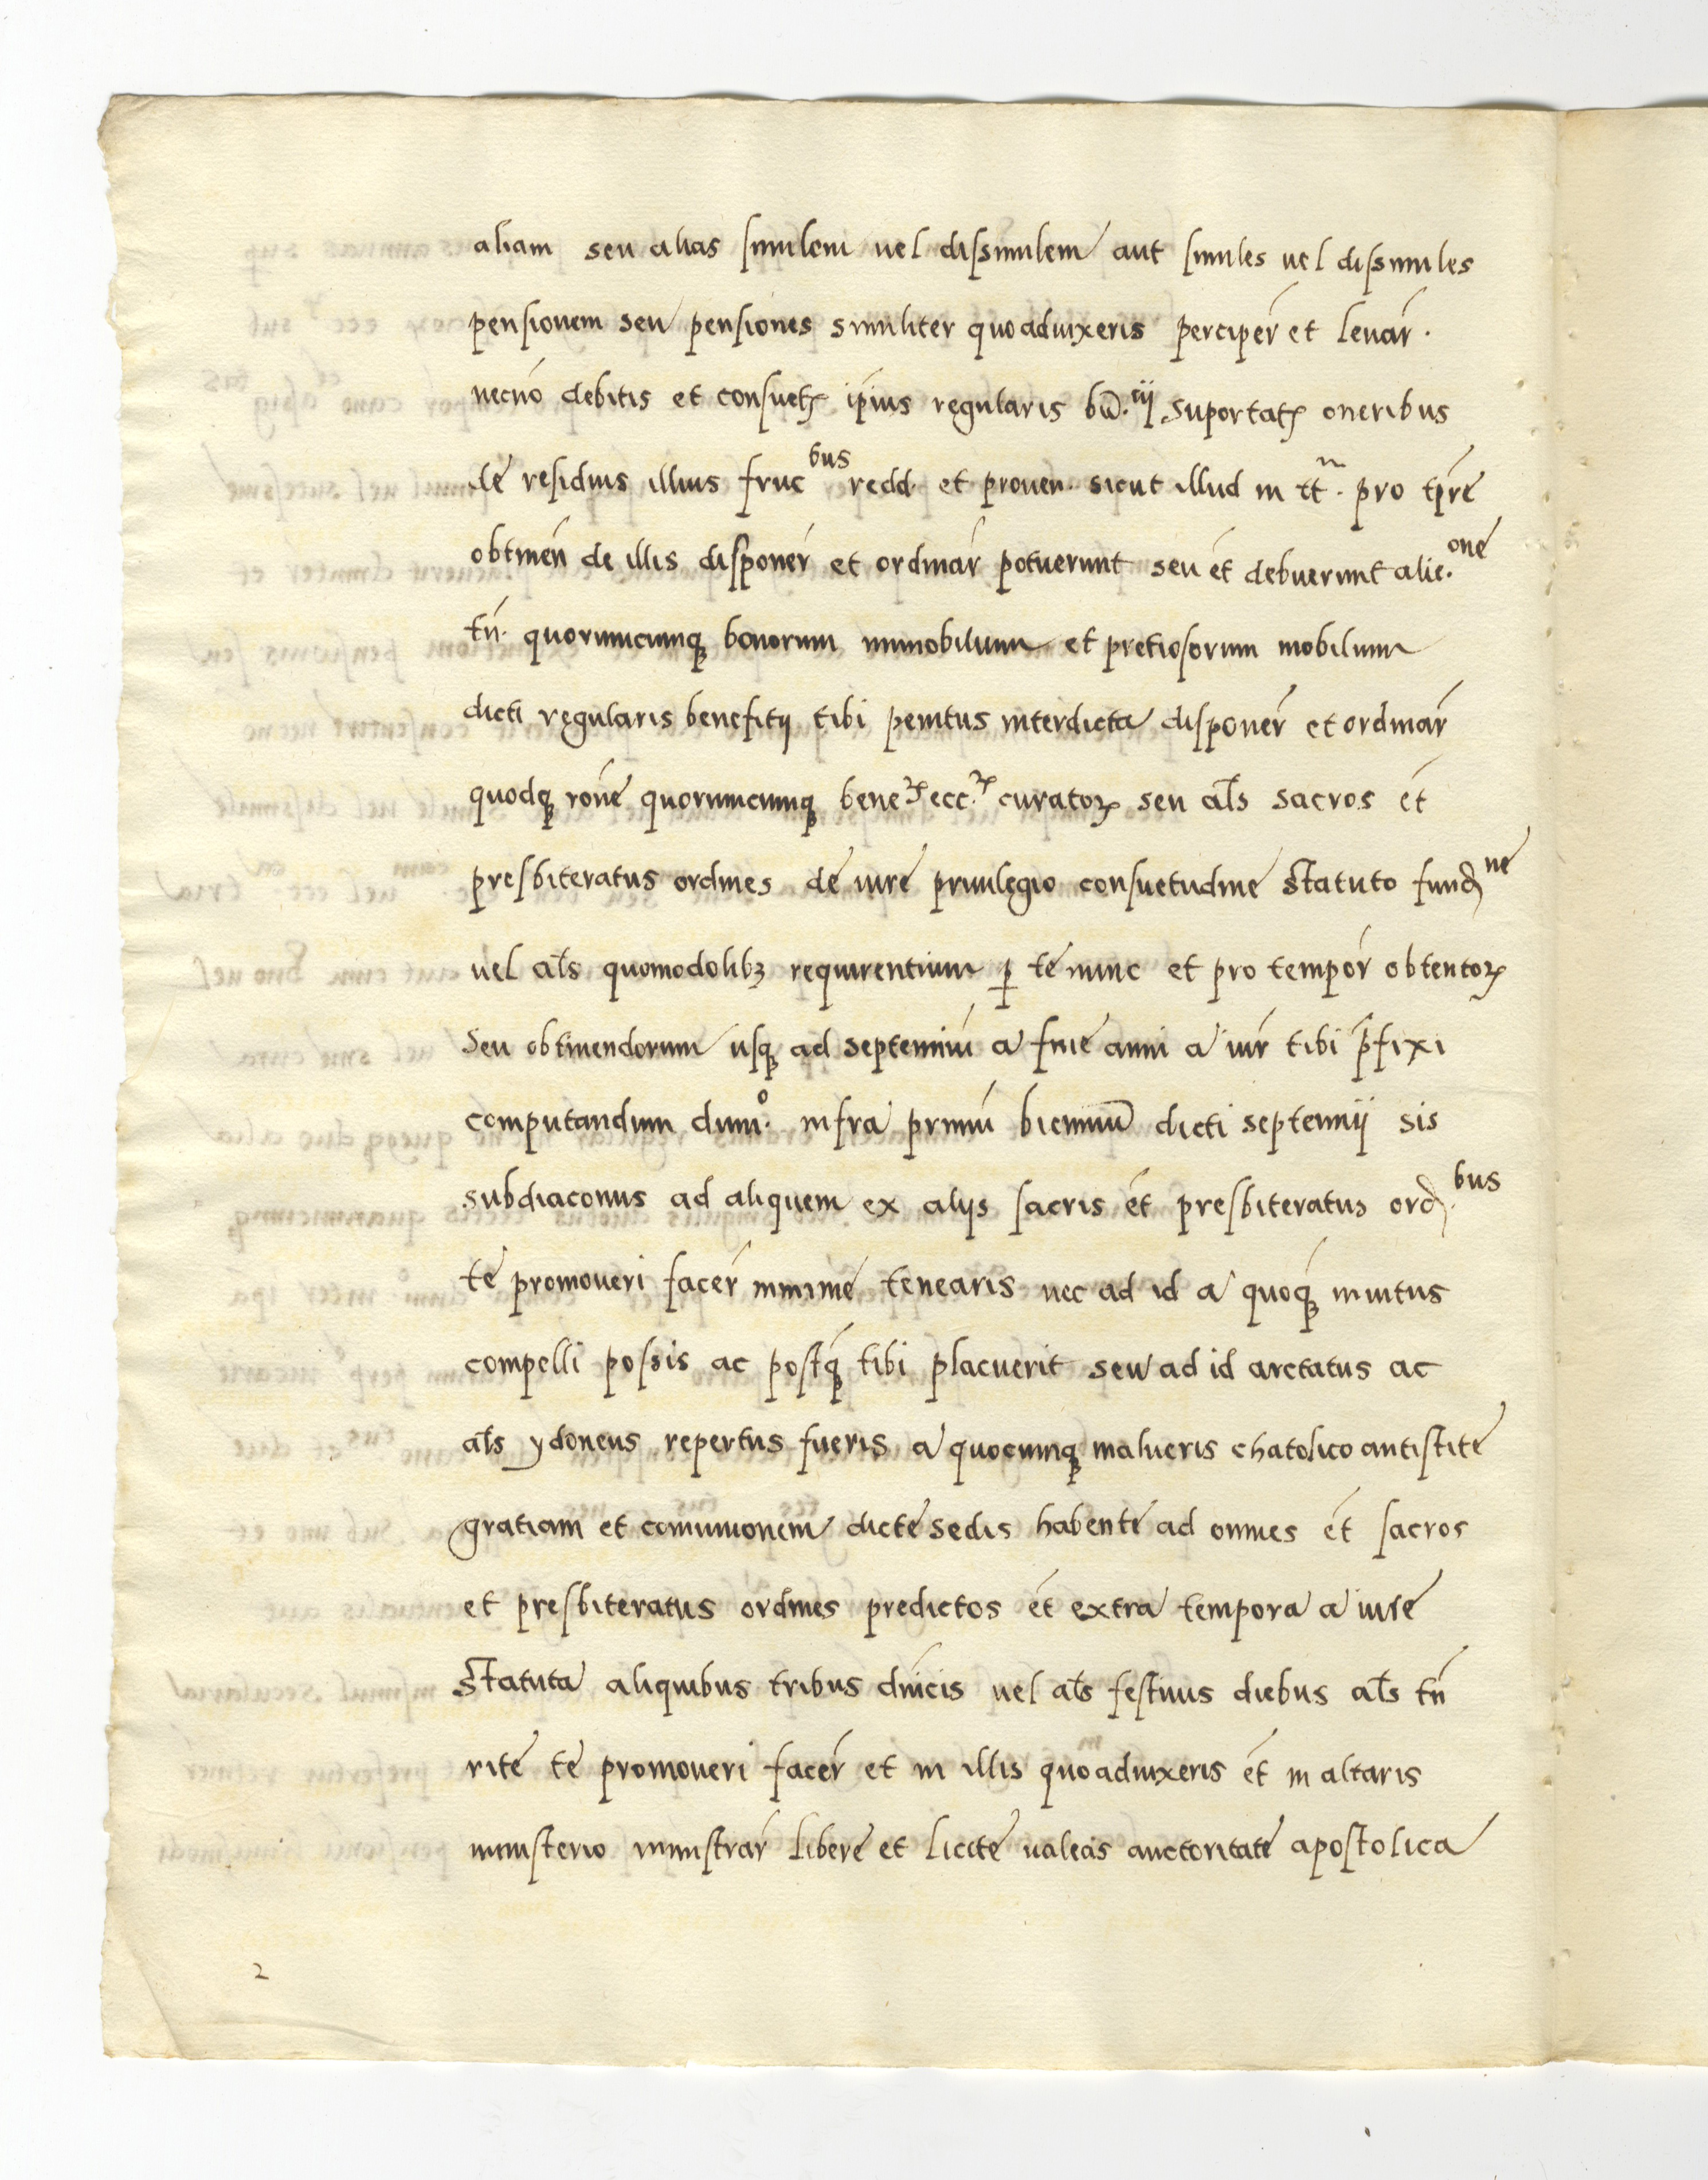 aliam seu alias similem uel dissimilem aut similes uel dissimiles
pensionem seu pensiones similiter quoaduixeris perciper̄ et leuar̄.
necnō debitis et consuetꝭ ip̄ius regularis bn̄.cij suportatꝭ oneribus
de residuis illius fruc^bus redd. et prouen. sicut illud in tt̄. pro tp̄re
obtinen̄ de illis disponer̄ et ordinar̄ potuerunt seu et̄ debuerunt alie.^one
tn̄. quorumcumqꝫ bonorum immobilium et pretiosorum mobilium
dicti regularis benefitij tibi penitus interdicta disponer̄ et ordinar̄
quodqꝫ rōne quorumcumqꝫ bene^ꝝ ecc.^ꝝ curatoꝝ seu al̄s sacros et̄
presbiteratus ordines de iure priuilegio consuetudine statuto fund^ne
uel al̄s quomodolibꝫ requirentium ꝑ te nunc et pro tempor̄ obtentoꝝ
seu obtinendorum usqꝫ ad septenniū a fine anni a iur̄ tibi p̄fixi
computandum dum.^o infra primū bienniū dicti septennij sis
subdiaconus ad aliquem ex alijs sacris et̄ presbiteratus ord.^bus
te promoueri facer̄ minime tenearis nec ad id a quoqꝫ inuitus
compelli possis ac postqꝫ tibi placuerit seu ad id arctatus ac
al̄s ydoneus repertus fueris a quocumqꝫ malueris chatolico antistite
gratiam et comunionem dicte sedis habente ad omnes et̄ sacros
et presbiteratus ordines predictos et̄ extra tempora a iure
statuta aliquibus tribus dn̄icis uel al̄s festiuis diebus al̄s tn̄
rite te promoueri facer̄ et in illis quoaduixeris et̄ in altaris
ministerio ministrar̄ libere et licite ualeas auctoritate apostolica
2